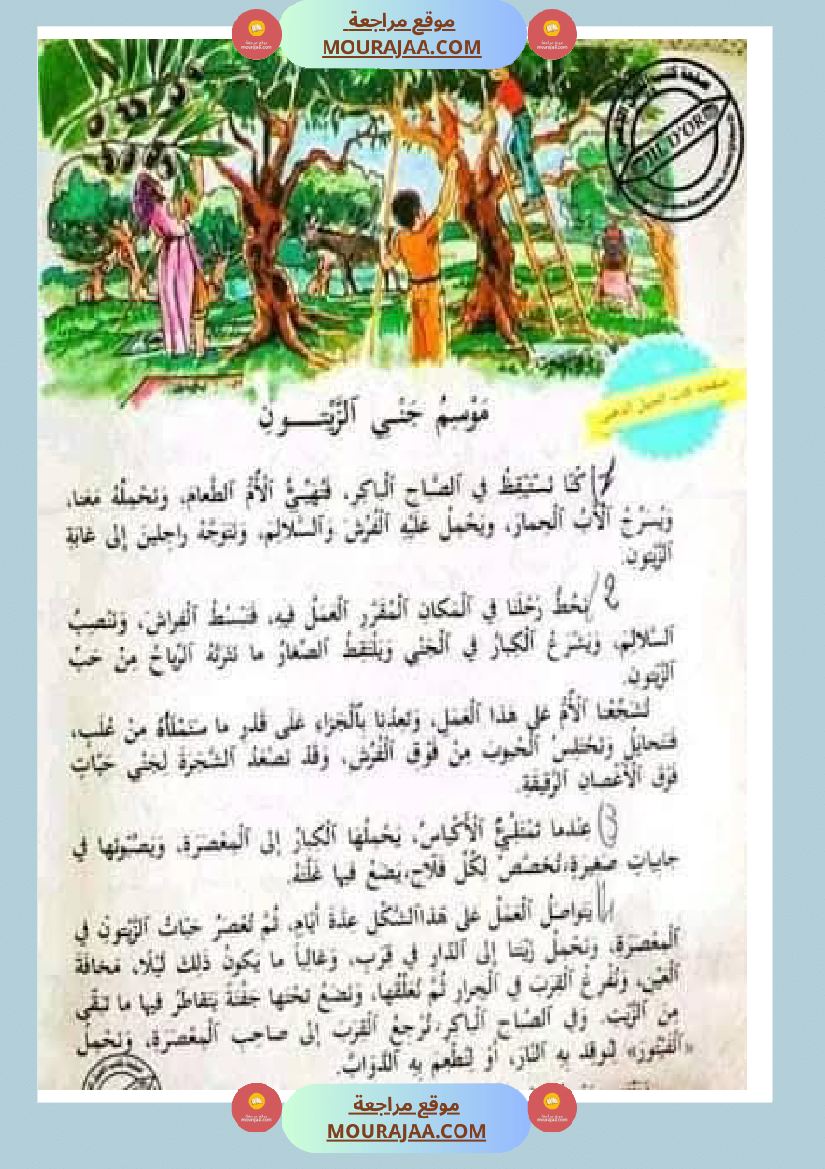 موقع مراجعة
MOURAJAA.COM
JIL D'OR
صفحة كتب الجيل الذهبي
مَوْسِمُ جَنْيِ ٱلزَّيْتُونِ
1/ كُنَّا نَسْتَيْقِظُ فِي ٱلصَّبَاحِ ٱلْبَاكِرِ، فَتُهَيِّئُ ٱلْأُمُّ ٱلطَّعَامَ، وَنَحْمِلُهُ مَعَنَا،
وَيُسَرِّجُ ٱلْأَبُ ٱلْحِمَارَ، وَيَحْمِلُ عَلَيْهِ ٱلْفُرُشَ وَٱلسَّلَالِمَ، وَنَتَوَجَّهُ رَاجِلِينَ إِلَى غَابَةِ
ٱلزَّيْتُونِ.
2/ نَحُطُّ رَحْلَنَا فِي ٱلْمَكَانِ ٱلْمُقَرَّرِ ٱلْعَمَلُ فِيهِ، فَنَبْسُطُ ٱلْفِرَاشَ، وَنَنْصِبُ
ٱلسَّلَالِمَ، وَيَشْرَعُ ٱلْكِبَارُ فِي ٱلْجَنْيِ وَيَلْتَقِطُ ٱلصِّغَارُ مَا نَثَرَتْهُ ٱلرِّيَاحُ مِنْ حَبِّ
ٱلزَّيْتُونِ.
تُشَجِّعُنَا ٱلْأُمُّ عَلَى هَذَا ٱلْعَمَلِ، وَتَعِدُنَا بِٱلْجَزَاءِ عَلَى قَدْرِ مَا سَنَمْلَأُهُ مِنْ عُلَبٍ،
فَنَتَحَايَلُ وَنَخْتَلِسُ ٱلْحُبُوبَ مِنْ فَوْقِ ٱلْفُرُشِ، وَقَدْ نَصْعَدُ ٱلشَّجَرَةَ لِجَنْيِ حَبَّاتٍ
فَوْقَ ٱلْأَغْصَانِ ٱلرَّقِيقَةِ.
3 عِنْدَمَا تَمْتَلِئُ ٱلْأَكْيَاسُ، يَحْمِلُهَا ٱلْكِبَارُ إِلَى ٱلْمِعْصَرَةِ، وَيَصُبُّونَهَا فِي
جَابِيَاتٍ صَغِيرَةٍ، تُخَصَّصُ لِكُلِّ فَلَّاحٍ، يَضَعُ فِيهَا غَلَّتَهُ.
يَتَوَاصَلُ ٱلْعَمَلُ عَلَى هَذَا ٱلشَّكْلِ عِدَّةَ أَيَّامٍ، ثُمَّ تُعْصَرُ حَبَّاتُ ٱلزَّيْتُونِ فِي
ٱلْمِعْصَرَةِ، وَنَحْمِلُ زَيْتَنَا إِلَى ٱلدَّارِ فِي قِرَبٍ، وَغَالِبًا مَا يَكُونُ ذَلِكَ لَيْلًا، مَخَافَةَ
ٱلْعَيْنِ، وَنُفْرِغُ ٱلْقِرَبَ فِي ٱلْجِرَارِ ثُمَّ نُعَلِّقُهَا، وَنَضَعُ تَحْتَهَا جَفْنَةً يَتَقَاطَرُ فِيهَا مَا تَبَقَّى
مِنَ ٱلزَّيْتِ. وَفِي ٱلصَّبَاحِ ٱلْبَاكِرِ، نُرْجِعُ ٱلْقِرَبَ إِلَى صَاحِبِ ٱلْمِعْصَرَةِ، وَنَحْمِلُ
«ٱلْفَيْتُورَ» لِنُوقِدَ بِهِ ٱلنَّارَ، أَوْ لِنُطْعِمَ بِهِ ٱلدَّوَابَّ.
موقع مراجعة
MOURAJAA.COM